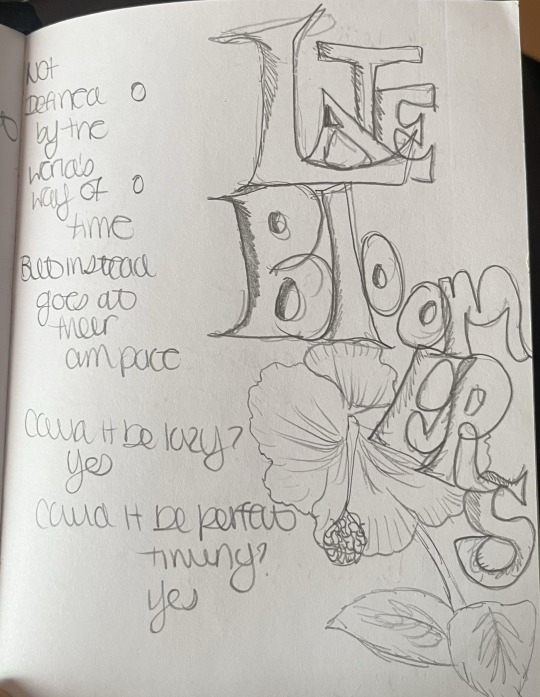 Not
Defined
by the
world's
way of
time
But instead
goes at
their
own pace
Could it be lazy?
yes
Could it be perfect
timing?
yes
LATE
BlOOMERS